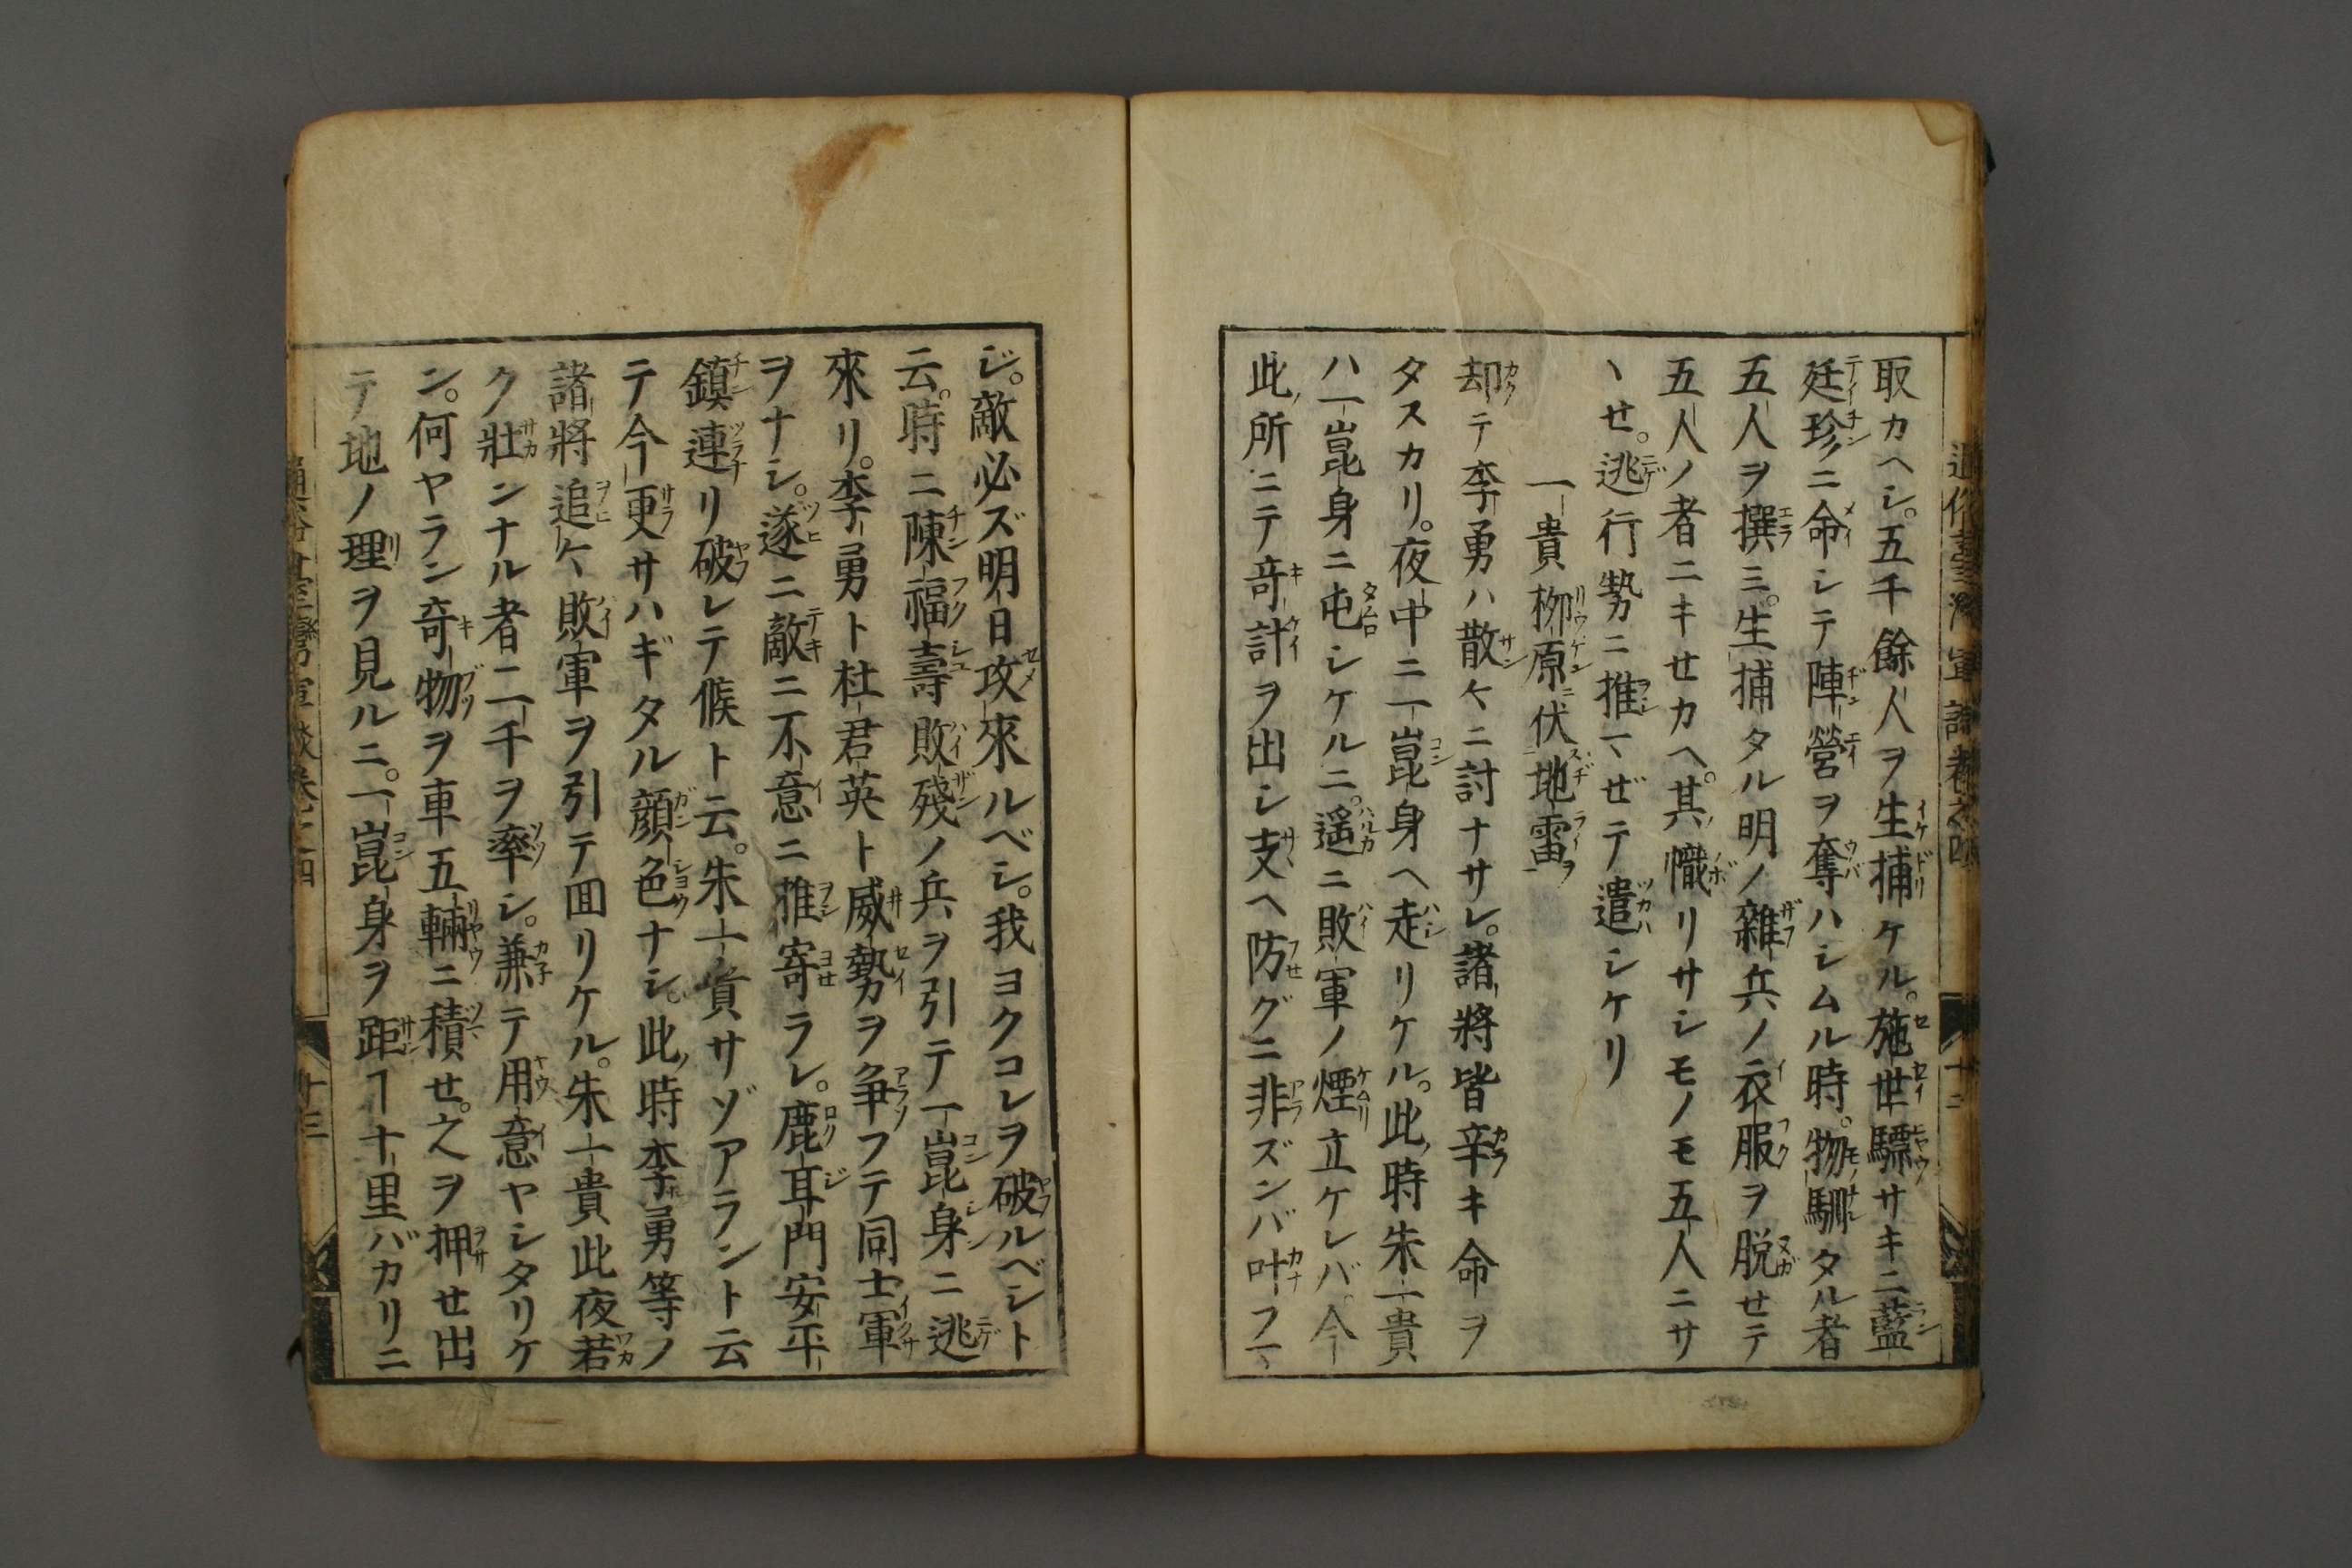 取カヘシ。五千餘人ヲ生捕ケル。施世驃サキニ藍
廷珍ニ命シテ陣營ヲ奪ハシムル時。物馴タル者
五人ヲ撰ミ。生捕タル明ノ雜兵ノ衣服ヲ脱セテ
五人ノ者ニキセカヘ。其幟リサシモノモ五人ニサ
ヽせ。逃行勢ニ推マぜテ遣シケリ
一貴栁原ニ伏地雷ヲ
却テ李勇ハ散々ニ討ナサレ。諸將皆辛キ命ヲ
タスカリ。夜中ニ一崑身ヘ走リケル。此時朱一貴
ハ一崑身ニ屯シケルニ。遥ニ敗軍ノ煙立ケレバ。今
此所ニテ竒計ヲ出シ支ヘ防グニ非ズンバ叶フマ
ジ。敵必ズ明日攻來ルベシ。我ヨクコレヲ破ルベシト
云。時ニ陳福壽敗殘ノ兵ヲ引テ一崑身ニ逃
來リ。李勇ト杜君英ト威勢ヲ争フテ同士軍
ヲナシ。遂ニ敵ニ不意ニ推寄ラレ。鹿耳門安平
鎮連リ破レテ候ト云。朱一貴サゾアラントト云
テ今更サハギタル顔色ナシ。此時李勇等ノ
諸將追々敗軍ヲ引テ囬リケル。朱一貴此夜若
ク壯ンナル者二千ヲ率シ。兼テ用意ヤシタリケ
ン。何ヤラン奇物ヲ車五輛ニ積せ。之ヲ押せ出
テ地ノ理ヲ見ルニ。一崑身ヲ距ヿ十里バカリニ